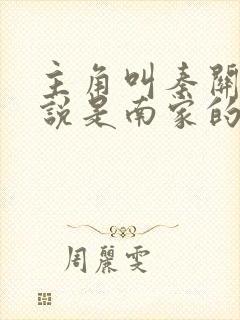 主角叫秦關
說是南家的
周麗雯